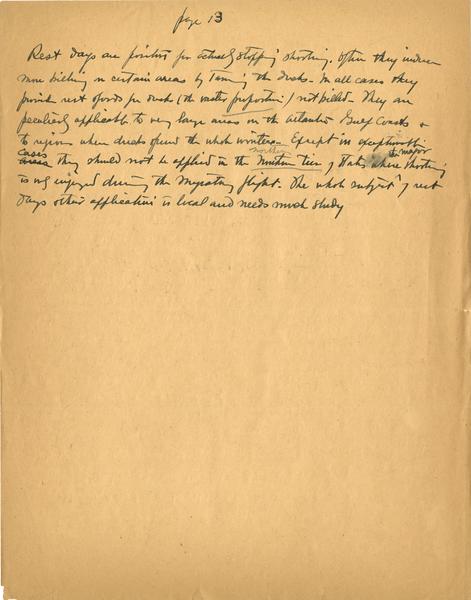 page 13
Rest days are positive for actually stopping shooting. Often they induce
more killing in certain areas by taming the ducks - In all cases they
furnish rest for ducks (the vastly proportion) not killed - They are
peculiarly applicable to very large areas on the Atlantic Gulf Coasts &
to regions where ducks spend the whole winter. Except in exceptional
northern & minor
cases they should not be applied in the tier, that is, where shooting
is enjoyed during the migratory flight. The whole subject of rest
days & their application is local and needs much study